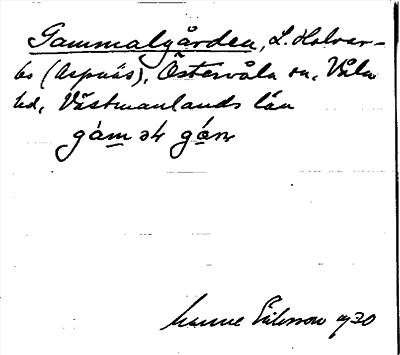 Gammalgården, L. Holvar-
bo (Aspnäs), Östervåla sn, Våla
hd, Västmanlands län
gám ə gá̱
Manne Eriksson 1930